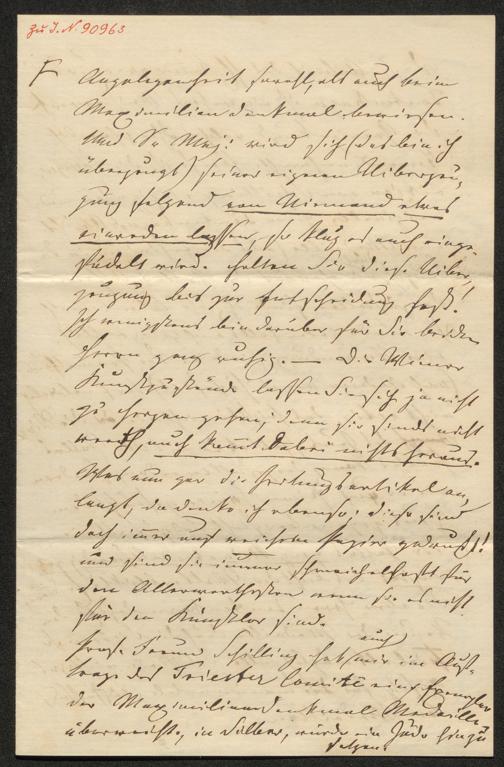 zu I.N. 90963
F Angelegenheit sowohl, als auch beim
Maximilian denkmal bewiesen.
Und Se Maj: wird sich (das bin ich
überzeugt) seiner eigenen Uiberzeu„
gung folgend von Niemand etwas
einreden lassen, so klug es auch einge„
fädelt wird. Halten Sie diese Uiber„
zeugung bis zur Entscheidung fest!
Ich wenigstens bin darüber für Sie beide
Herrn ganz ruhig. — Die Wiener
Kunstzustände lassen Sie sich ja nicht
zu Herzen gehen; denn sie sinds nicht
werth, auch kommt dabei nichts heraus.
Was nun gar die Zeitungsartikel an„
langt, da denke ich ebenso; diese sind
doch immer auf weichem Papier gedruckt!
und sind sie immer schmeichelhaft für
den Allerwerthesten wenn sie es nicht
für den Künstler sind.
Freund Schilling hat auch mir im Auf„
trage des Triester Comité ein Exemplar
der Maximiliandenkmal Medaille
überreicht, in Silber, würde ein Jude hinzu
setzen.